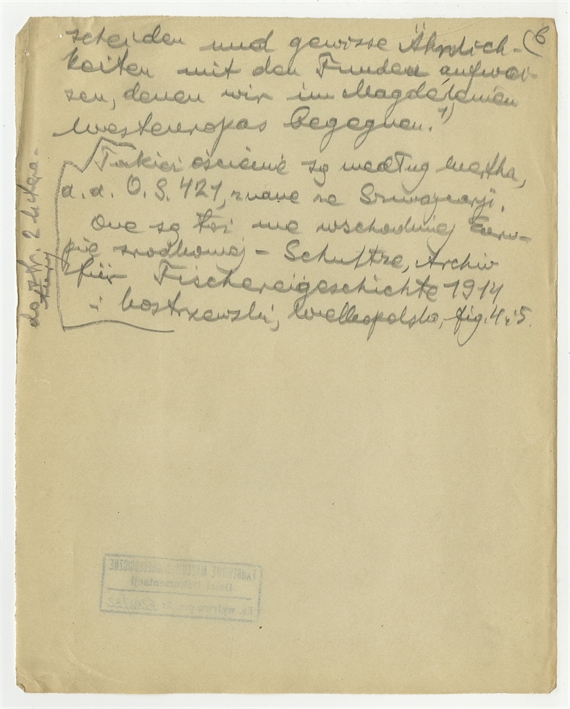 6
scheiden und gewisse Ähnlich-
keiten mit den Funden aufwei-
sen, denen wir im Magdalenien
Westeuropas begegnen.¹)
Takie ościenie są według Wertha,
a. a. O. S. 421, znane ze Szwajcarji.
One są też na wschodniej Euro-
pie środkowej – Schultze, Archiv
für Fischereigeschichte 1914
i Kostrzewski, Wielkopolska, fig. 4 i 5.
do str. 2
Oddział Dokumentacji